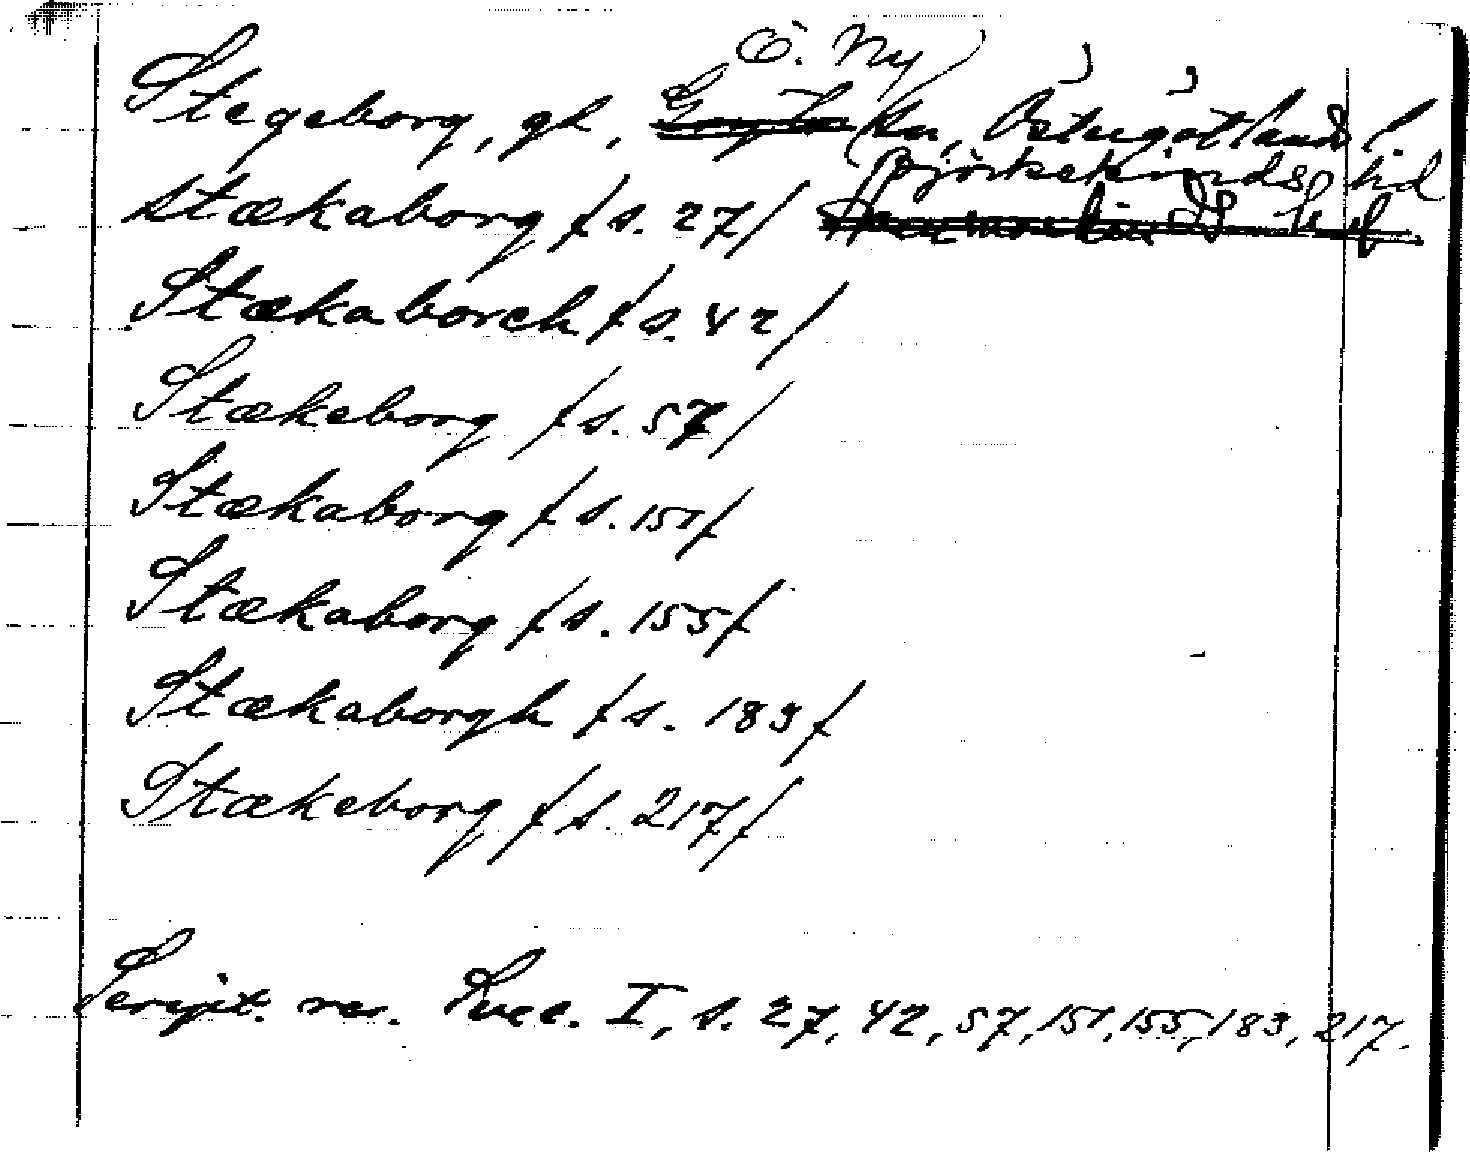 Ö. Ny
Stegeborg, gd, sn, Östergötlands l.
Björkekinds hd
Stækaborg /s. 27/ Hammarkinds hd
Stækaborch /s. 42/
Stækeborg /s. 57/
Stækaborg /s. 151/
Stækaborg /s. 155/
Stækaborgh /s. 183/
Stækeborg /s. 217/
Script. rer. Svec. I, s. 27, 42, 57, 151, 155, 183, 217.